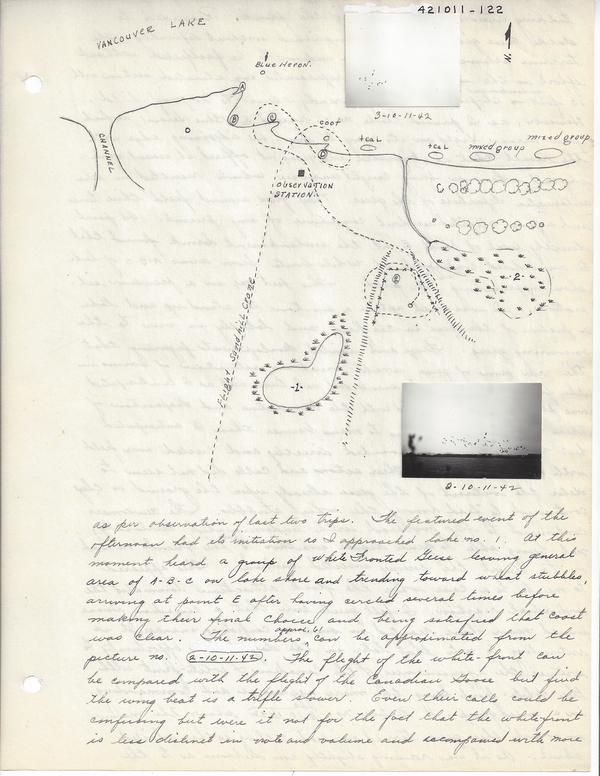 421011-122
VANCOUVER LAKE
N.
BLUE HERON.
3-10-11-42
A
B
C
COOT
D
teaL
teaL
mixed group
mixed group
CHANNEL
OBSERVATION
STATION.
-2-
E
Flight Sand hill Crane
-1-
2-10-11-42
as per observation of last two trips. The featured event of the
afternoon had its initiation as I approached lake no. 1. At this
moment heard a group of White Fronted Geese leaving general
area of A-B-C on lake shore and trending toward wheat stubbles,
arriving at point E after having circled several times before
making their final choice and being satisfied that coast
was clear. The numbers, approx. 61 can be approximated from the
picture no. 2-10-11-42. The flight of the white-front can
be compared with the flight of the Canadian Goose but find
the wing beat is a trifle slower. Even their calls could be
confusing but were it not for the fact that the white-front
is less distinct in note and volume and accompanied with more